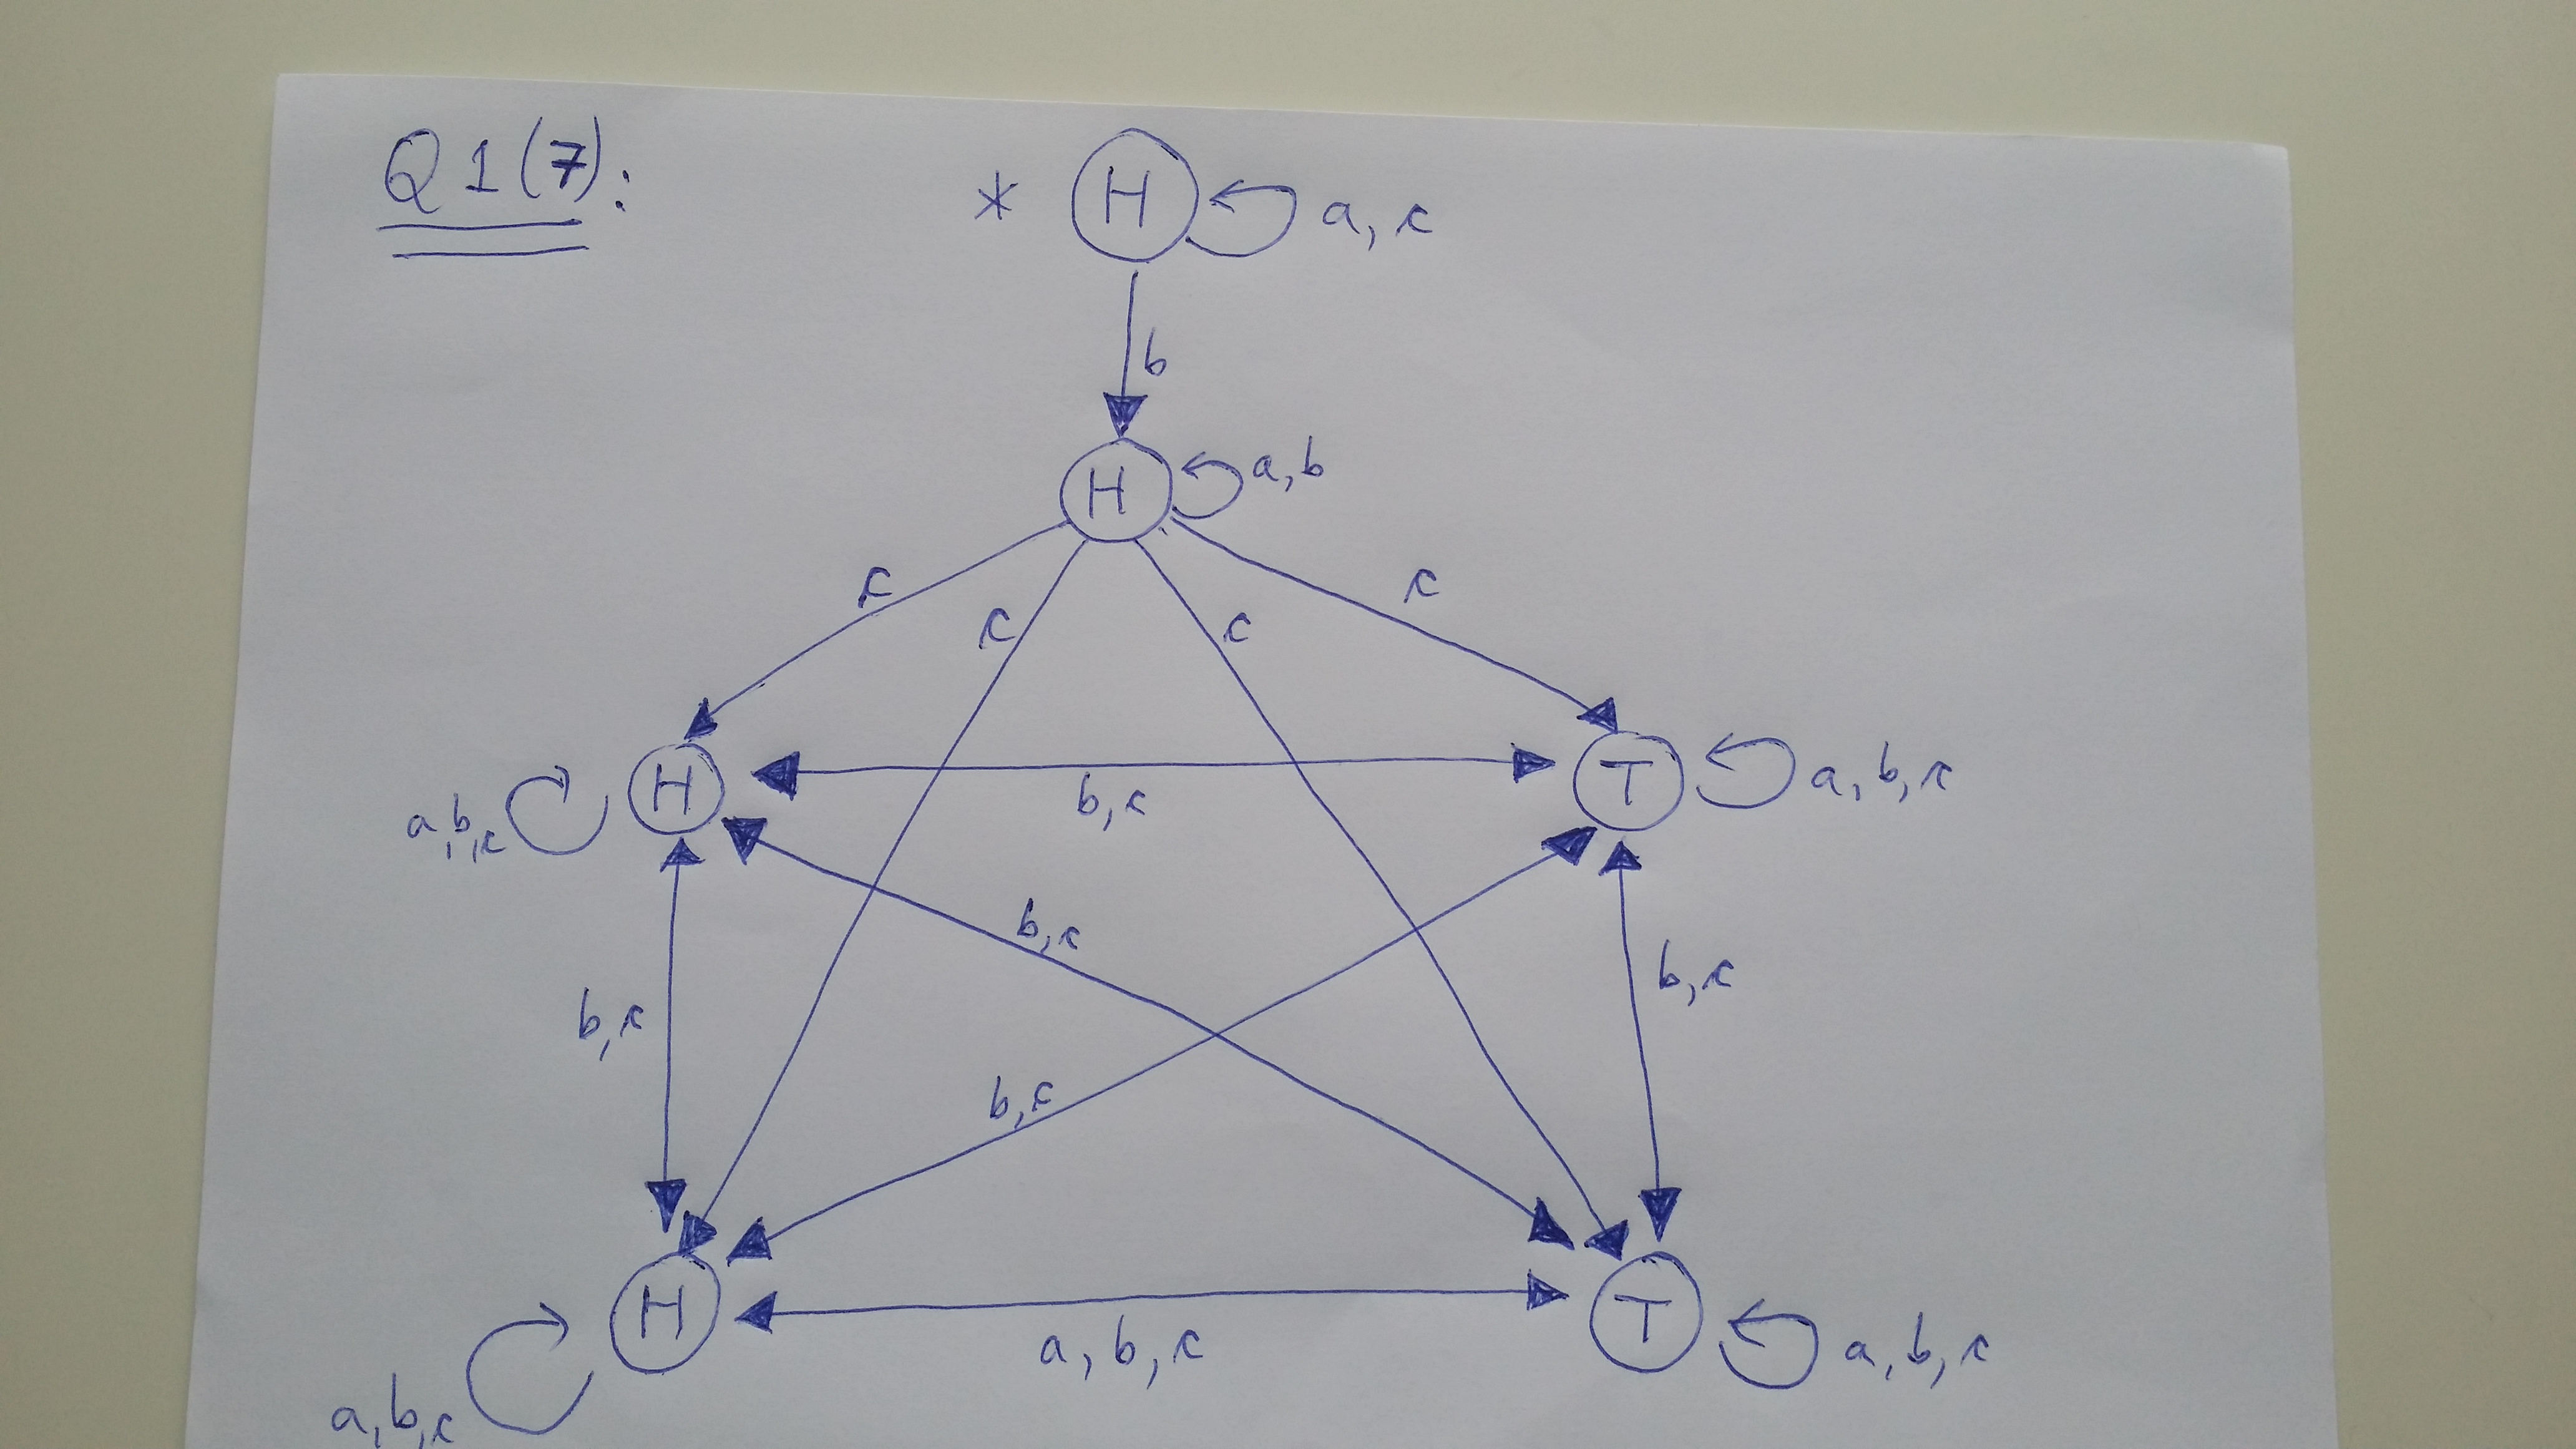 Q1(7):
* H a, c
b
H a, b
c c c c
H T
a, b, c b, c a, b, c
b, c
b, c b, c
b, c
H T
a, b, c a, b, c
a, b, c